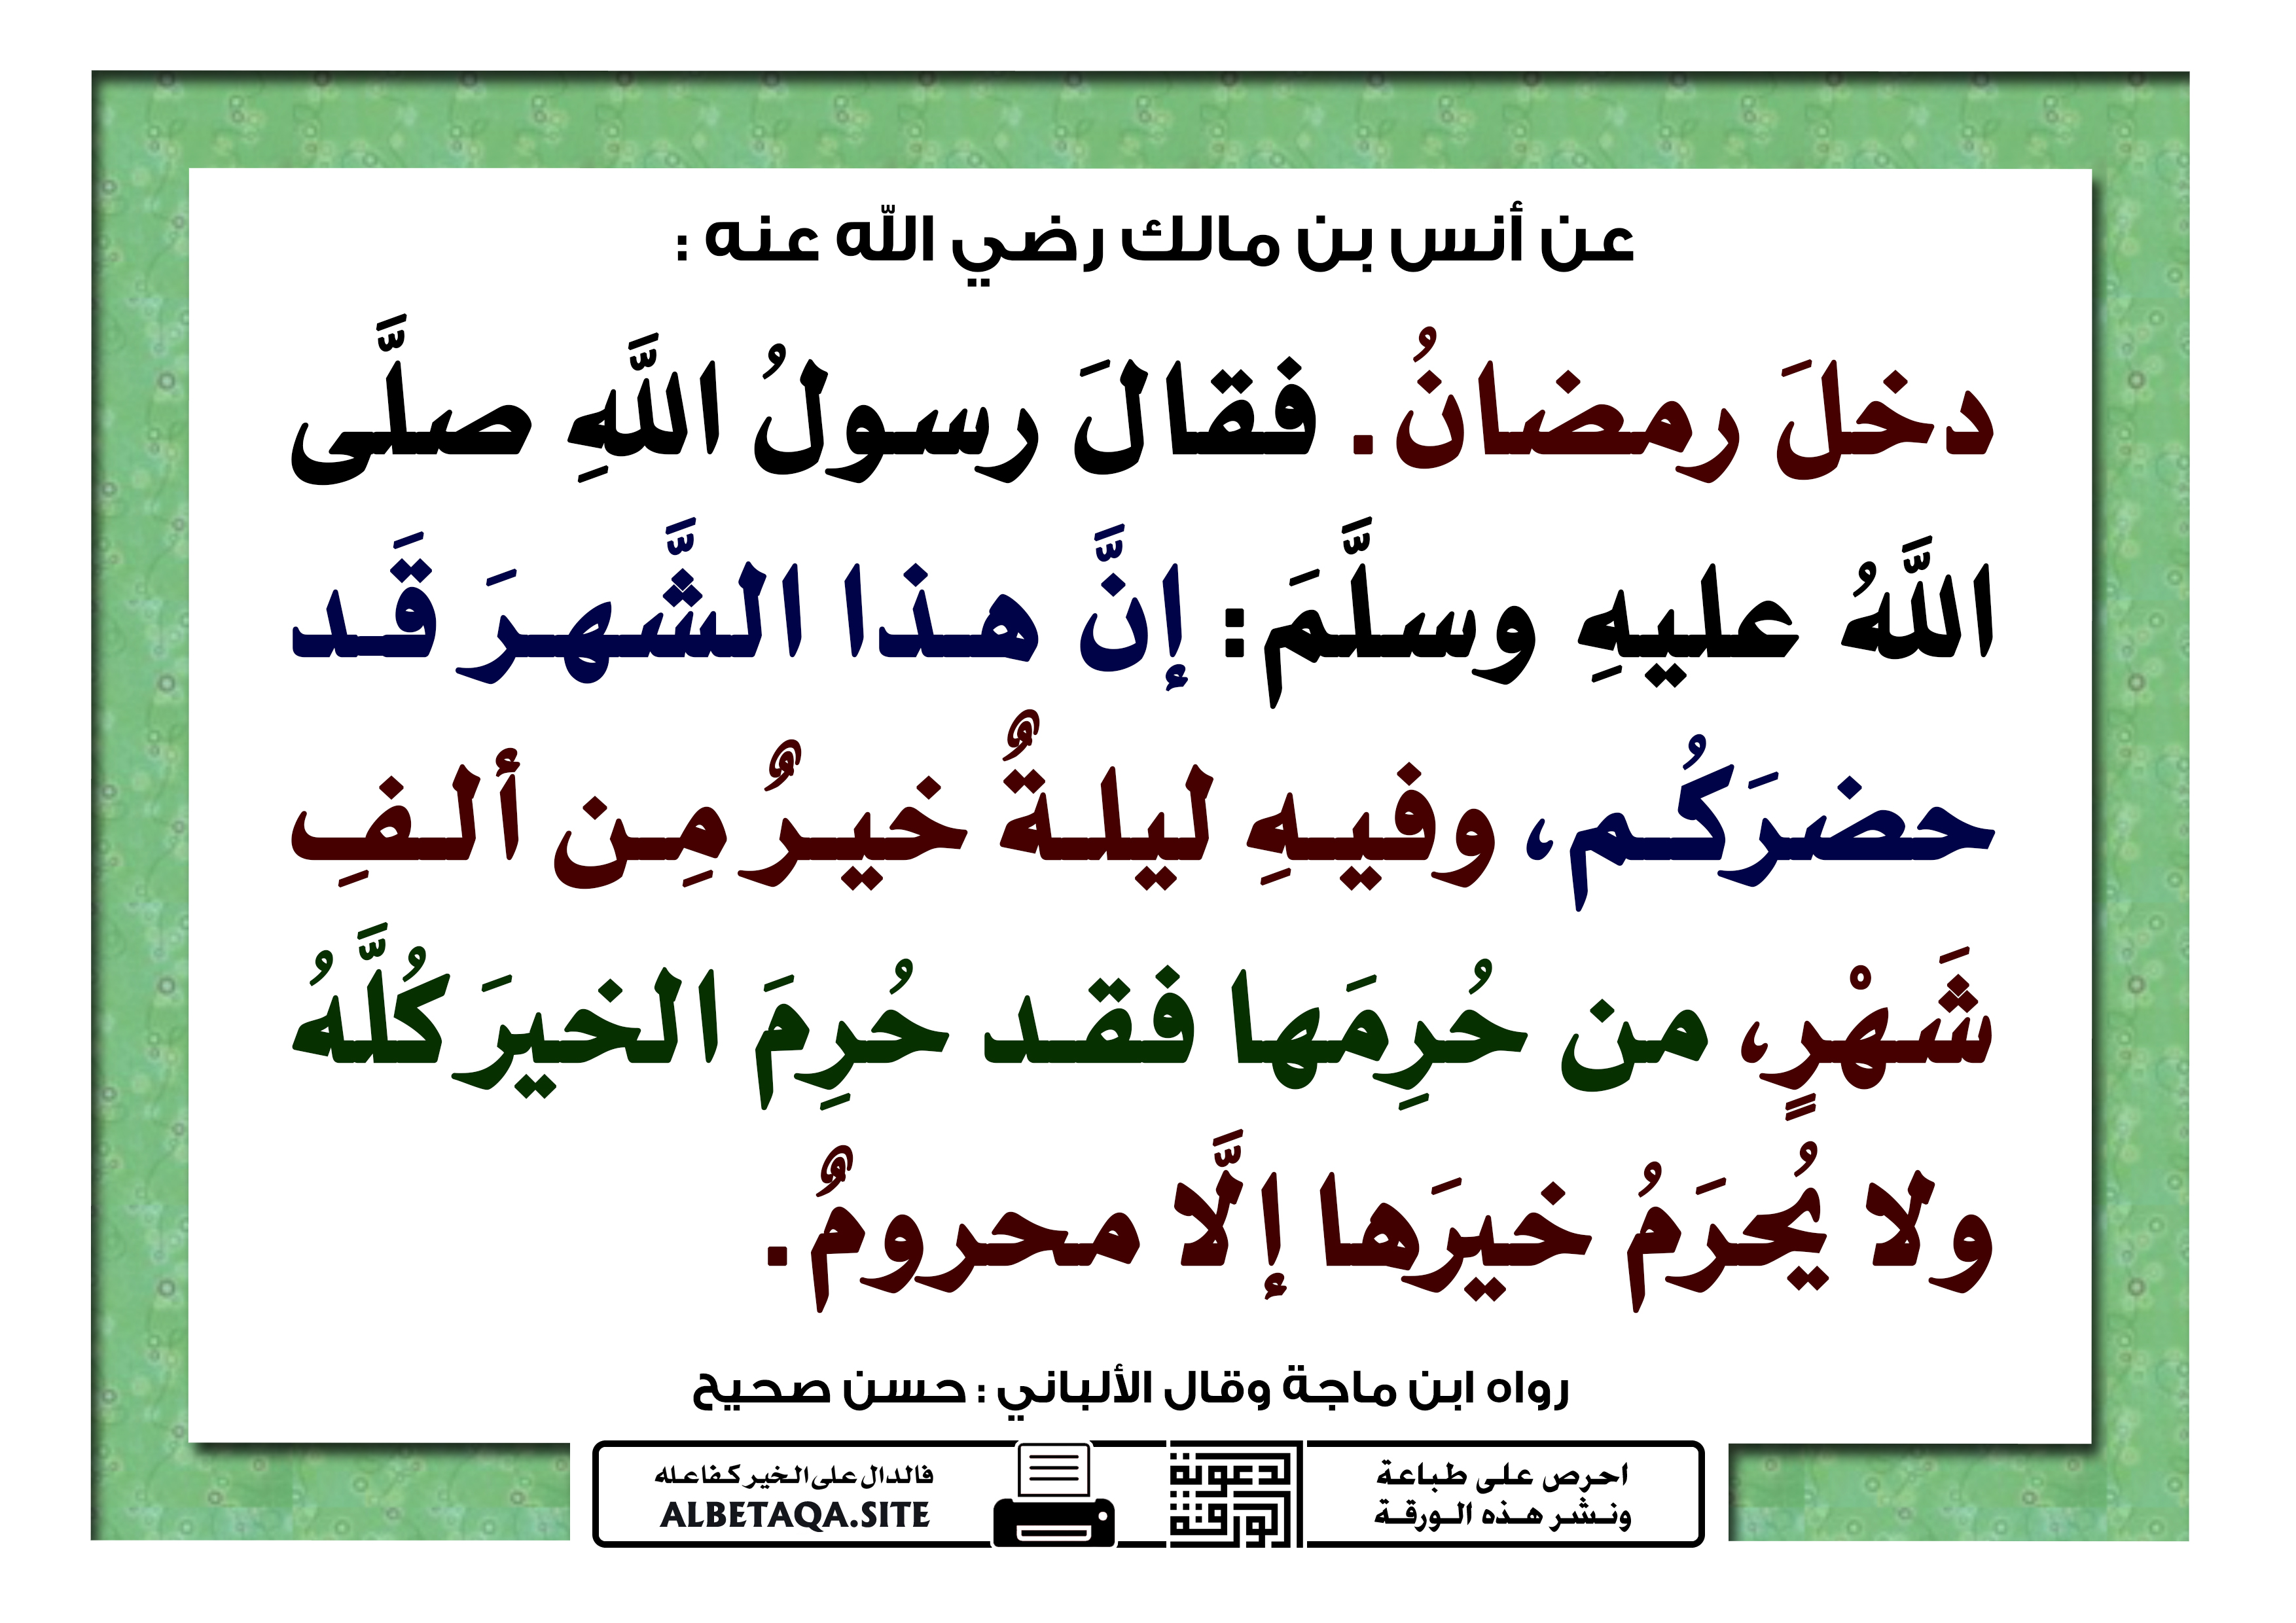 عن أنس بن مالك رضي الله عنه :
دخلَ رمضانُ. فقالَ رسولُ اللَّهِ صلَّى
اللَّهُ عليهِ وسلَّمَ: إنَّ هذا الشَّهرَ قَد
حضرَكُم، وفيهِ ليلةٌ خيرٌ مِن ألفِ
شَهْرٍ، من حُرِمَها فقد حُرِمَ الخيرَ كُلَّهُ
ولا يُحرَمُ خيرَها إلَّا محرومٌ.
رواه ابن ماجة وقال الألباني : حسن صحيح
احرص على طباعة
ونشر هذه الورقة
الورقة
الدعوية
فالدال على الخير كفاعله
ALBETAQA.SITE